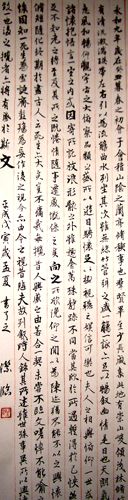 永和九年歲在癸丑暮春之初會于會稽山陰之蘭亭脩禊事也群賢畢至少長咸集此地有崇山峻領茂林脩竹又有
清流激湍映帶左右引以為流觴曲水列坐其次雖無絲竹管弦之盛一觴一詠亦足以暢敘幽情是日也天朗氣清惠
風和暢仰觀宇宙之大俯察品類之盛所以遊目騁懷足以極視聽之娛信可樂也夫人之相與俯仰一世或取
諸懷抱悟言一室之內或因寄所託放浪形骸之外雖趣舍萬殊靜躁不同當其欣於所遇暫得於己快
然自足不知老之將至及其所之既惓情隨事遷感慨係之矣向之所欣俛仰之間以為陳迹猶不能不以之興
懷況脩短隨化終期於盡古人云死生亦大矣豈不痛哉每攬昔人興感之由若合一契未嘗不臨文嗟悼不能喻之於
懷固知一死生為虛誕齊彭殤為妄作後之視今亦由今之視昔悲夫故列敘時人錄其所述雖世殊事異所以興懷其
致一也後之攬者亦將有感於斯文
孟夏